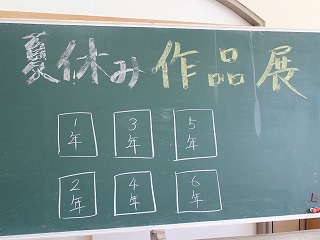 夏休み作品展
1年 3年 5年
2年 4年 6年